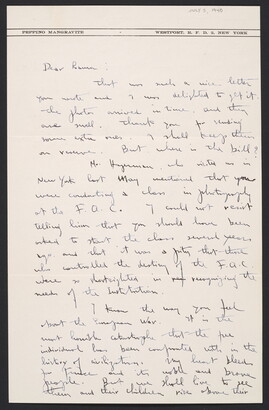 PEPPINO MANGRAVITE WESTPORT, R. F. D. 2, NEW YORK
Dear :
That was such a nice letter
you wrote and I was delighted to get it.
The photos arrived in time, and they
are swell. Thank you for sending
some extra ones. I shall keep them
on reserve. But where is the bill?
Mr. who visited us in
New York last May mentioned that you
were conducting a class in photography
at the F. A. C. I could not resist
telling him that you should have been
asked to start the class several years
ago and that it was a pity that those
who controlled the destiny of the F. A. C.
were so shortsighted in recognizing the
needs of the Institution.
I know the way you feel
about the European war. It is the
most horrible catastrophe that the free
individual has been confronted with in the
history of civilization. My heart bleeds
for France and its noble and brave
people. But we shall live to see
them and their children rise above their